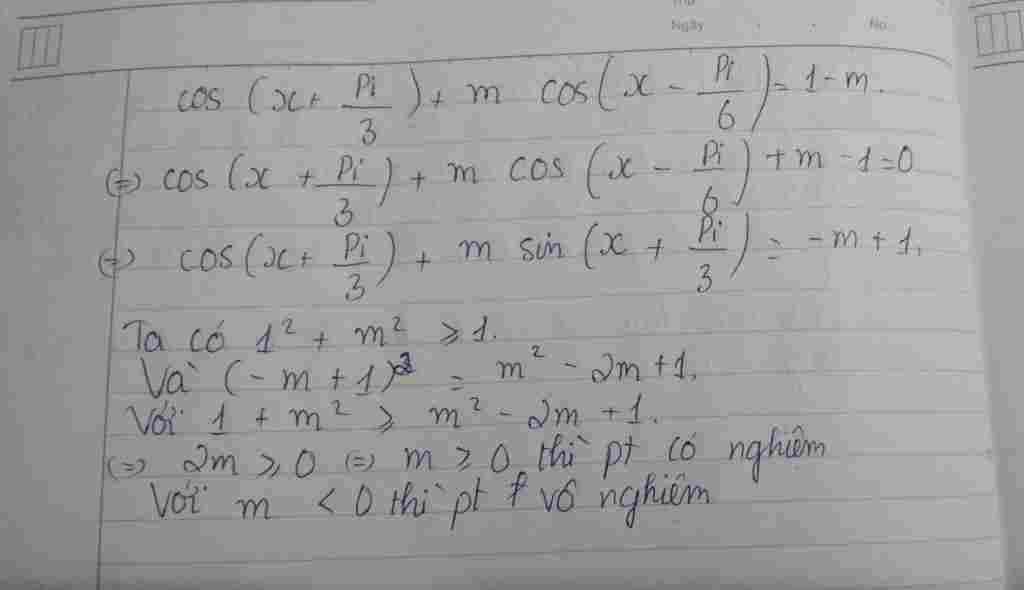 Ngày No.
cos (x + Pi/3) + m cos(x - Pi/6) = 1 - m.
(=) cos (x + Pi/3) + m cos (x - Pi/6) + m - 1 = 0
(=) cos (x + Pi/3) + m sin (x + Pi/3) = -m + 1.
Ta có 1² + m² ⩾ 1.
Và (-m + 1)² = m² - 2m + 1.
Với 1 + m² ⩾ m² - 2m + 1.
(=) 2m ⩾ 0 (=) m ⩾ 0 thì pt có nghiệm
Với m < 0 thì pt vô nghiệm